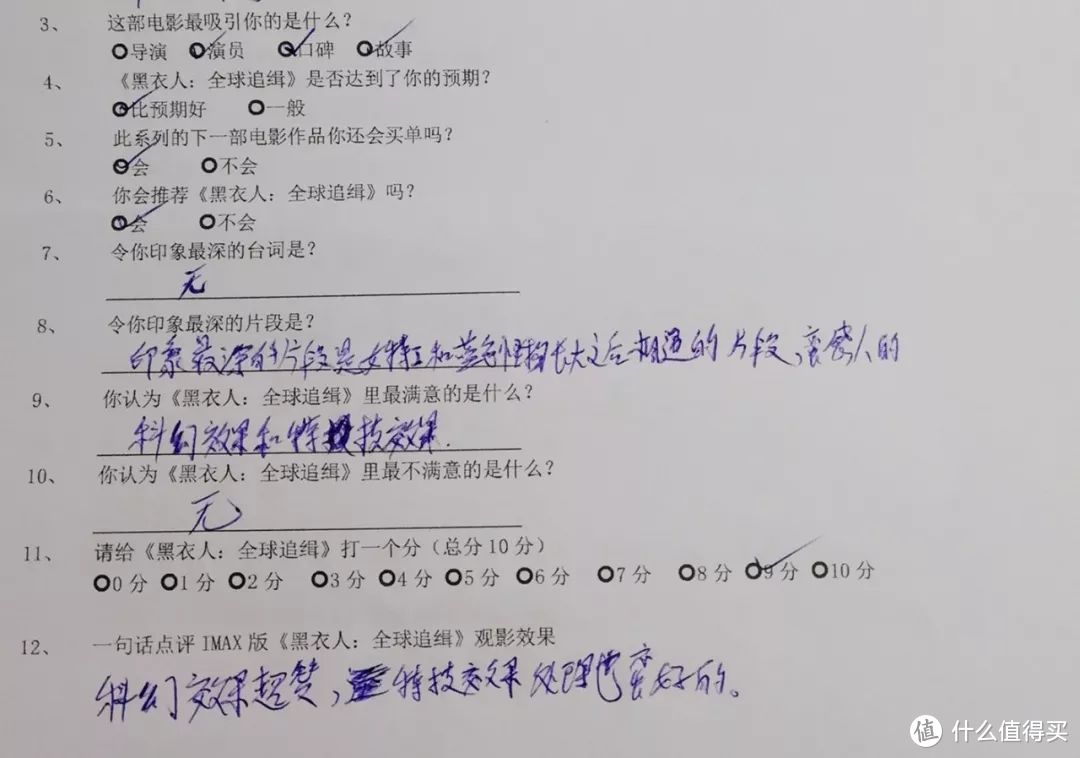 3、 这部电影最吸引你的是什么？
○导演 ○演员 ○口碑 ○故事
4、 《黑衣人：全球追缉》是否达到了你的预期？
○比预期好 ○一般
5、 此系列的下一部电影作品你还会买单吗？
○会 ○不会
6、 你会推荐《黑衣人：全球追缉》吗？
○会 ○不会
7、 令你印象最深的台词是？
无
8、 令你印象最深的片段是？
印象最深的片段是女特工和蓝色怪物长大之后相遇的片段，蛮感人的
9、 你认为《黑衣人：全球追缉》里最满意的是什么？
科幻效果和特技效果.
10、 你认为《黑衣人：全球追缉》里最不满意的是什么？
无
11、 请给《黑衣人：全球追缉》打一个分（总分10分）
○0分 ○1分 ○2分 ○3分 ○4分 ○5分 ○6分 ○7分 ○8分 ○9分 ○10分
12、 一句话点评IMAX版《黑衣人：全球追缉》观影效果
科幻效果超赞，特技效果处理得蛮好的。
值 什么值得买